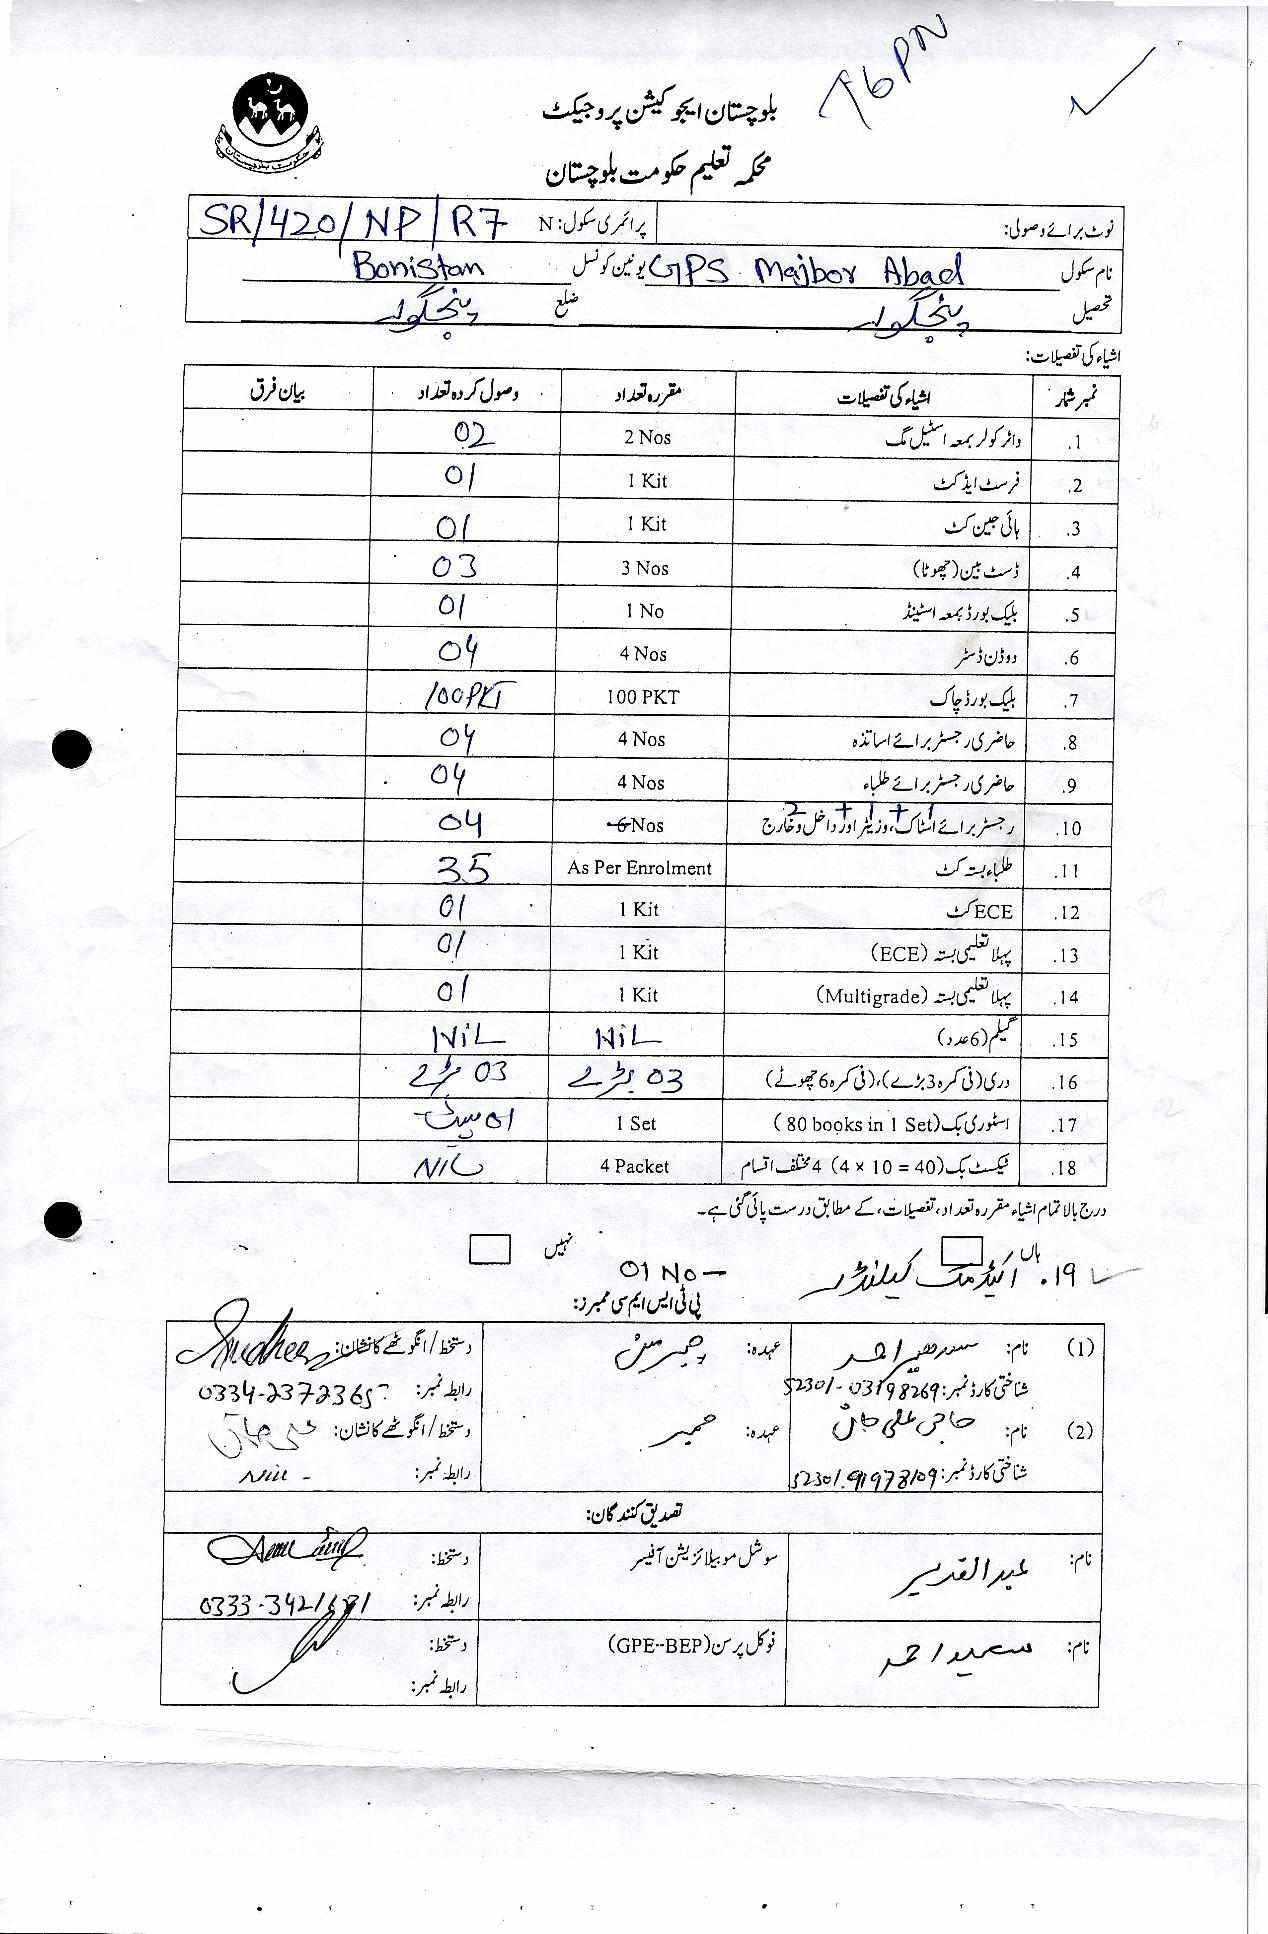 بلوچستان ایجوکیشن پروجیکٹ
محکمہ تعلیم حکومت بلوچستان
حکومت بلوچستان
نوٹ برائے وصولی: پرائمری سکول: N SR/420/NP/R7
نام سکول GPS Majbor Abad یونین کونسل Bonistan
تحصیل پنجگور ضلع پنجگور
اشیاء کی تفصیلات:
نمبر شمار اشیاء کی تفصیلات مقررہ تعداد وصول کردہ تعداد بیان فرق
1. واٹر کولر بمعہ اسٹیل مگ 2 Nos 02
2. فرسٹ ایڈ کٹ 1 Kit 01
3. ہائی جین کٹ 1 Kit 01
4. ڈسٹ بین (چھوٹا) 3 Nos 03
5. بلیک بورڈ بمعہ اسٹینڈ 1 No 01
6. ووڈن ڈسٹر 4 Nos 04
7. بلیک بورڈ چاک 100 PKT 100 PKT
8. حاضری رجسٹر برائے اساتذہ 4 Nos 04
9. حاضری رجسٹر برائے طلباء 4 Nos 04
2 + 1 + 1
10. رجسٹر برائے اسٹاک، وزیٹر اور داخل و خارج 6 Nos 04
11. طلباء بستہ کٹ As Per Enrolment 35
12. ECE کٹ 1 Kit 01
13. پہلا تعلیمی بستہ (ECE) 1 Kit 01
14. پہلا تعلیمی بستہ (Multigrade) 1 Kit 01
15. گیلم (6 عدد) NiL NiL
16. دری (فی کمرہ 3 بڑے)، (فی کمرہ 6 چھوٹے) 03 بڑے 03 بڑے
17. اسٹوری بک (80 books in 1 Set) 1 Set 01 سیٹ
18. ٹیکسٹ بک (4 × 10 = 40) 4 مختلف اقسام 4 Packet NIL
درج بالا تمام اشیاء مقررہ تعداد، تفصیلات، کے مطابق درست پائی گئی ہے۔
ہاں نہیں
19. اکیڈمک کیلنڈر 01 No
پی ٹی ایس ایم سی ممبرز:
(1) نام: عہدہ: چیرمین دستخط/انگوٹھے کا نشان:
شناختی کارڈ نمبر: 52301-03198269 رابطہ نمبر:
(2) نام: حاجی علی جان عہدہ: ممبر دستخط/انگوٹھے کا نشان: علی جان
شناختی کارڈ نمبر: 52301.91978109 رابطہ نمبر: Nill -
تصدیق کنندگان:
نام: عبدالقدیر سوشل موبیلائزیشن آفیسر دستخط:
رابطہ نمبر:
نام: سعید احمد فوکل پرسن (GPE-BEP) دستخط:
رابطہ نمبر: